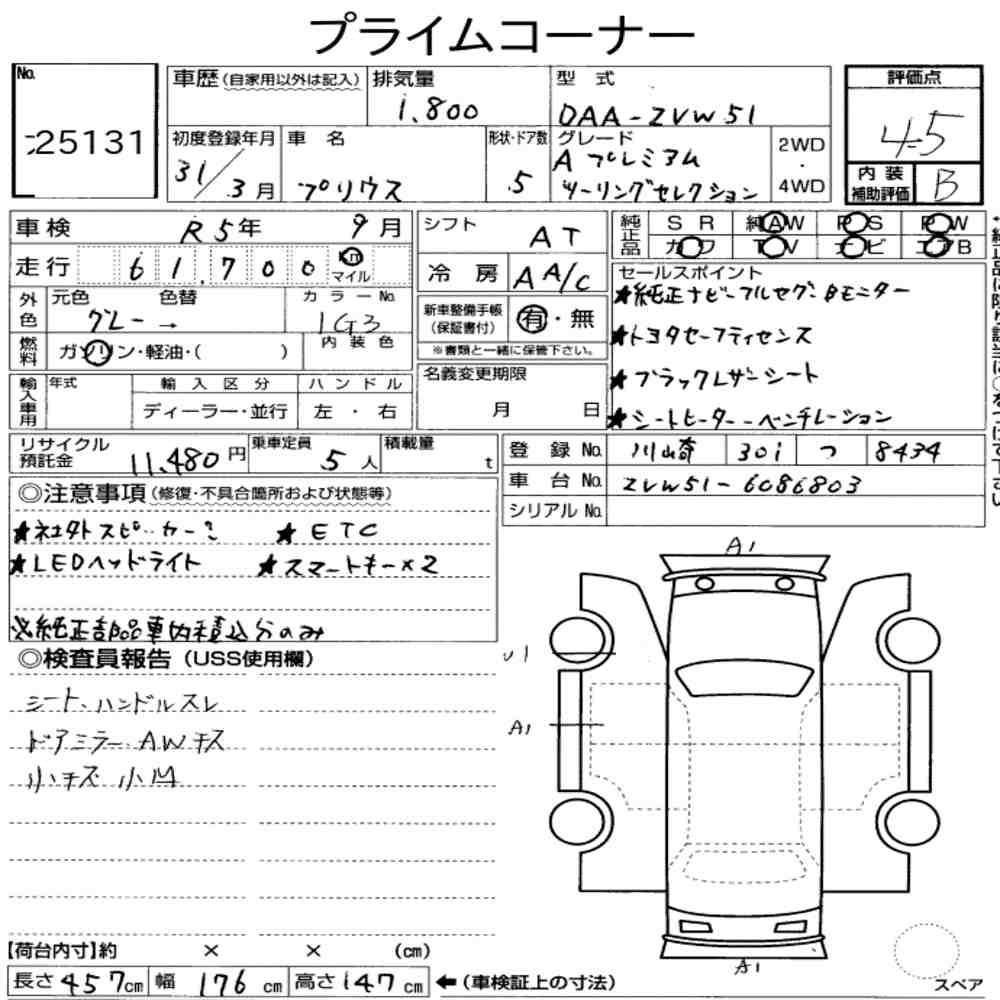 プライムコーナー
No. 25131
車歴 (自家用以外は記入)
排気量 1,800
型式 DAA-ZVW51
評価点 4.5
内装補助評価 B
初度登録年月 31/3月
車名 プリウス
形状・ドア数 5
グレード A プレミアム
ツーリングセレクション
2WD・4WD
車検 R5年 9月
走行 61,700 Km マイル
シフト AT
冷房 AA/C
純正品 SR 純AW PS PW
カワ TV ナビ エアB
外色 元色 色替 カラーNo
グレー → 1G3
燃料 ガソリン・軽油・( )
内装色
新車整備手帳(保証書付) 有・無
※書類と一緒に保管下さい。
セールスポイント
★純正ナビーフルセグ Bモニター
★トヨタセーフティセンス
★ブラックレザーシート
★シートヒーター ベンチレーション
輸入車用 年式 輸入区分 ハンドル
ディーラー・並行 左・右
名義変更期限 月 日
リサイクル預託金 11,480円
乗車定員 5人
積載量 t
登録No. 川崎 301 つ 8434
車台No. ZVW51-6086803
シリアルNo.
◎注意事項 (修復・不具合箇所および状態等)
★社外スピーカー ★ETC
★LEDヘッドライト ★スマートキー×2
※純正部品車内積込分のみ
◎検査員報告 (USS使用欄)
シート、ハンドルスレ
ドアミラー、AWキズ
小キズ 小凹
A1
U1
A1
A1
【荷台内寸】約 × × (cm)
長さ457cm 幅176cm 高さ147cm ←(車検証上の寸法)
スペア